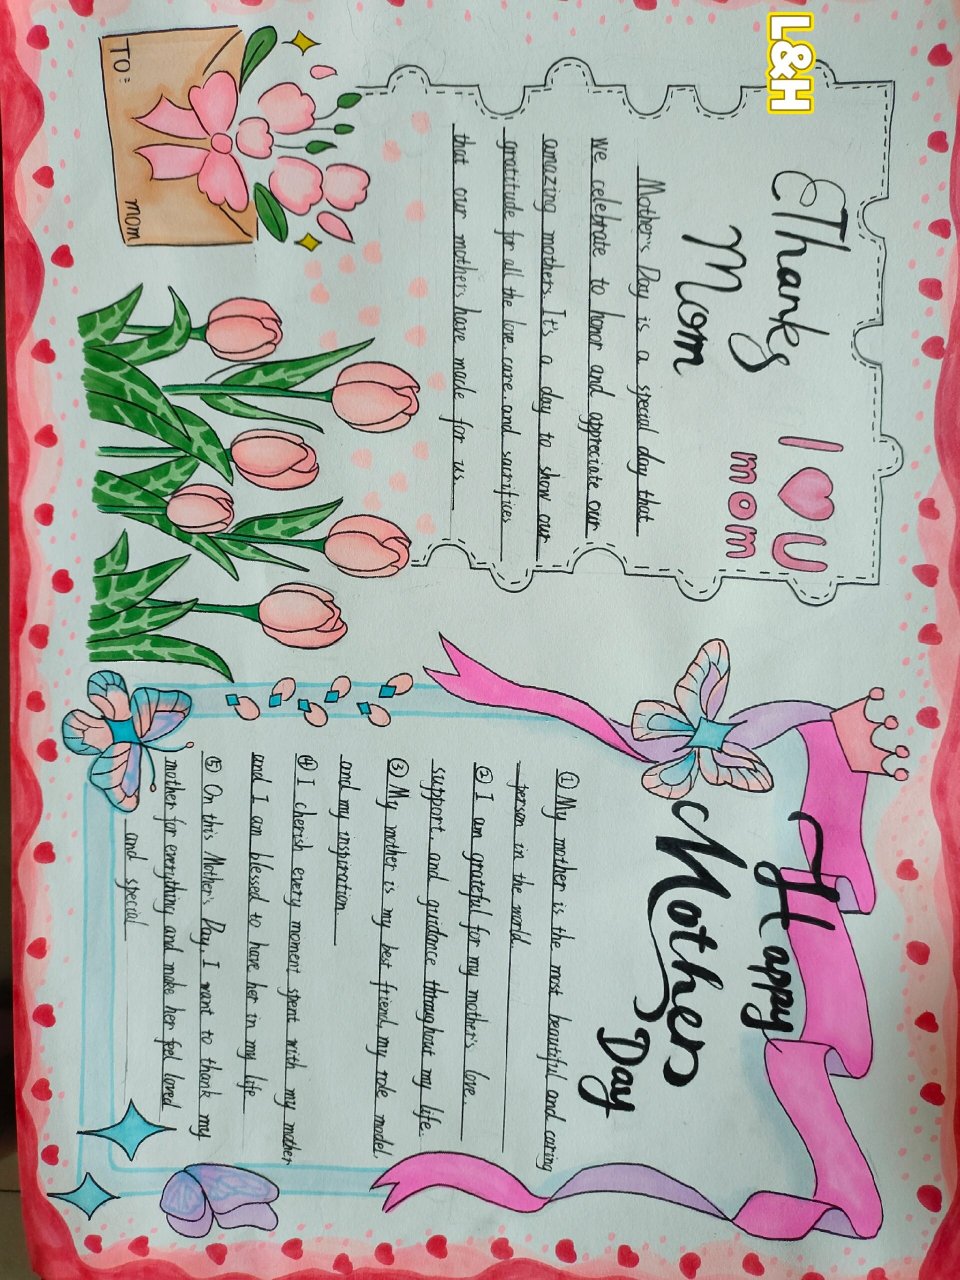 L&H
Thanks
Mom
I U
mom
Mother's Day is a special day that
we celebrate to honor and appreciate our
amazing mothers. It's a day to show our
gratitude for all the love, care, and sacrifices
that our mothers have made for us.
TO:
mom
Happy
Mother's
Day
① My mother is the most beautiful and caring
person in the world
② I am grateful for my mother's love.
support and guidance throughout my life.
③ My mother is my best friend, my role model
and my inspiration
④ I cherish every moment spent with my mother
and I am blessed to have her in my life
⑤ On this Mother's Day, I want to thank my
mother for everything and make her feel loved
and special